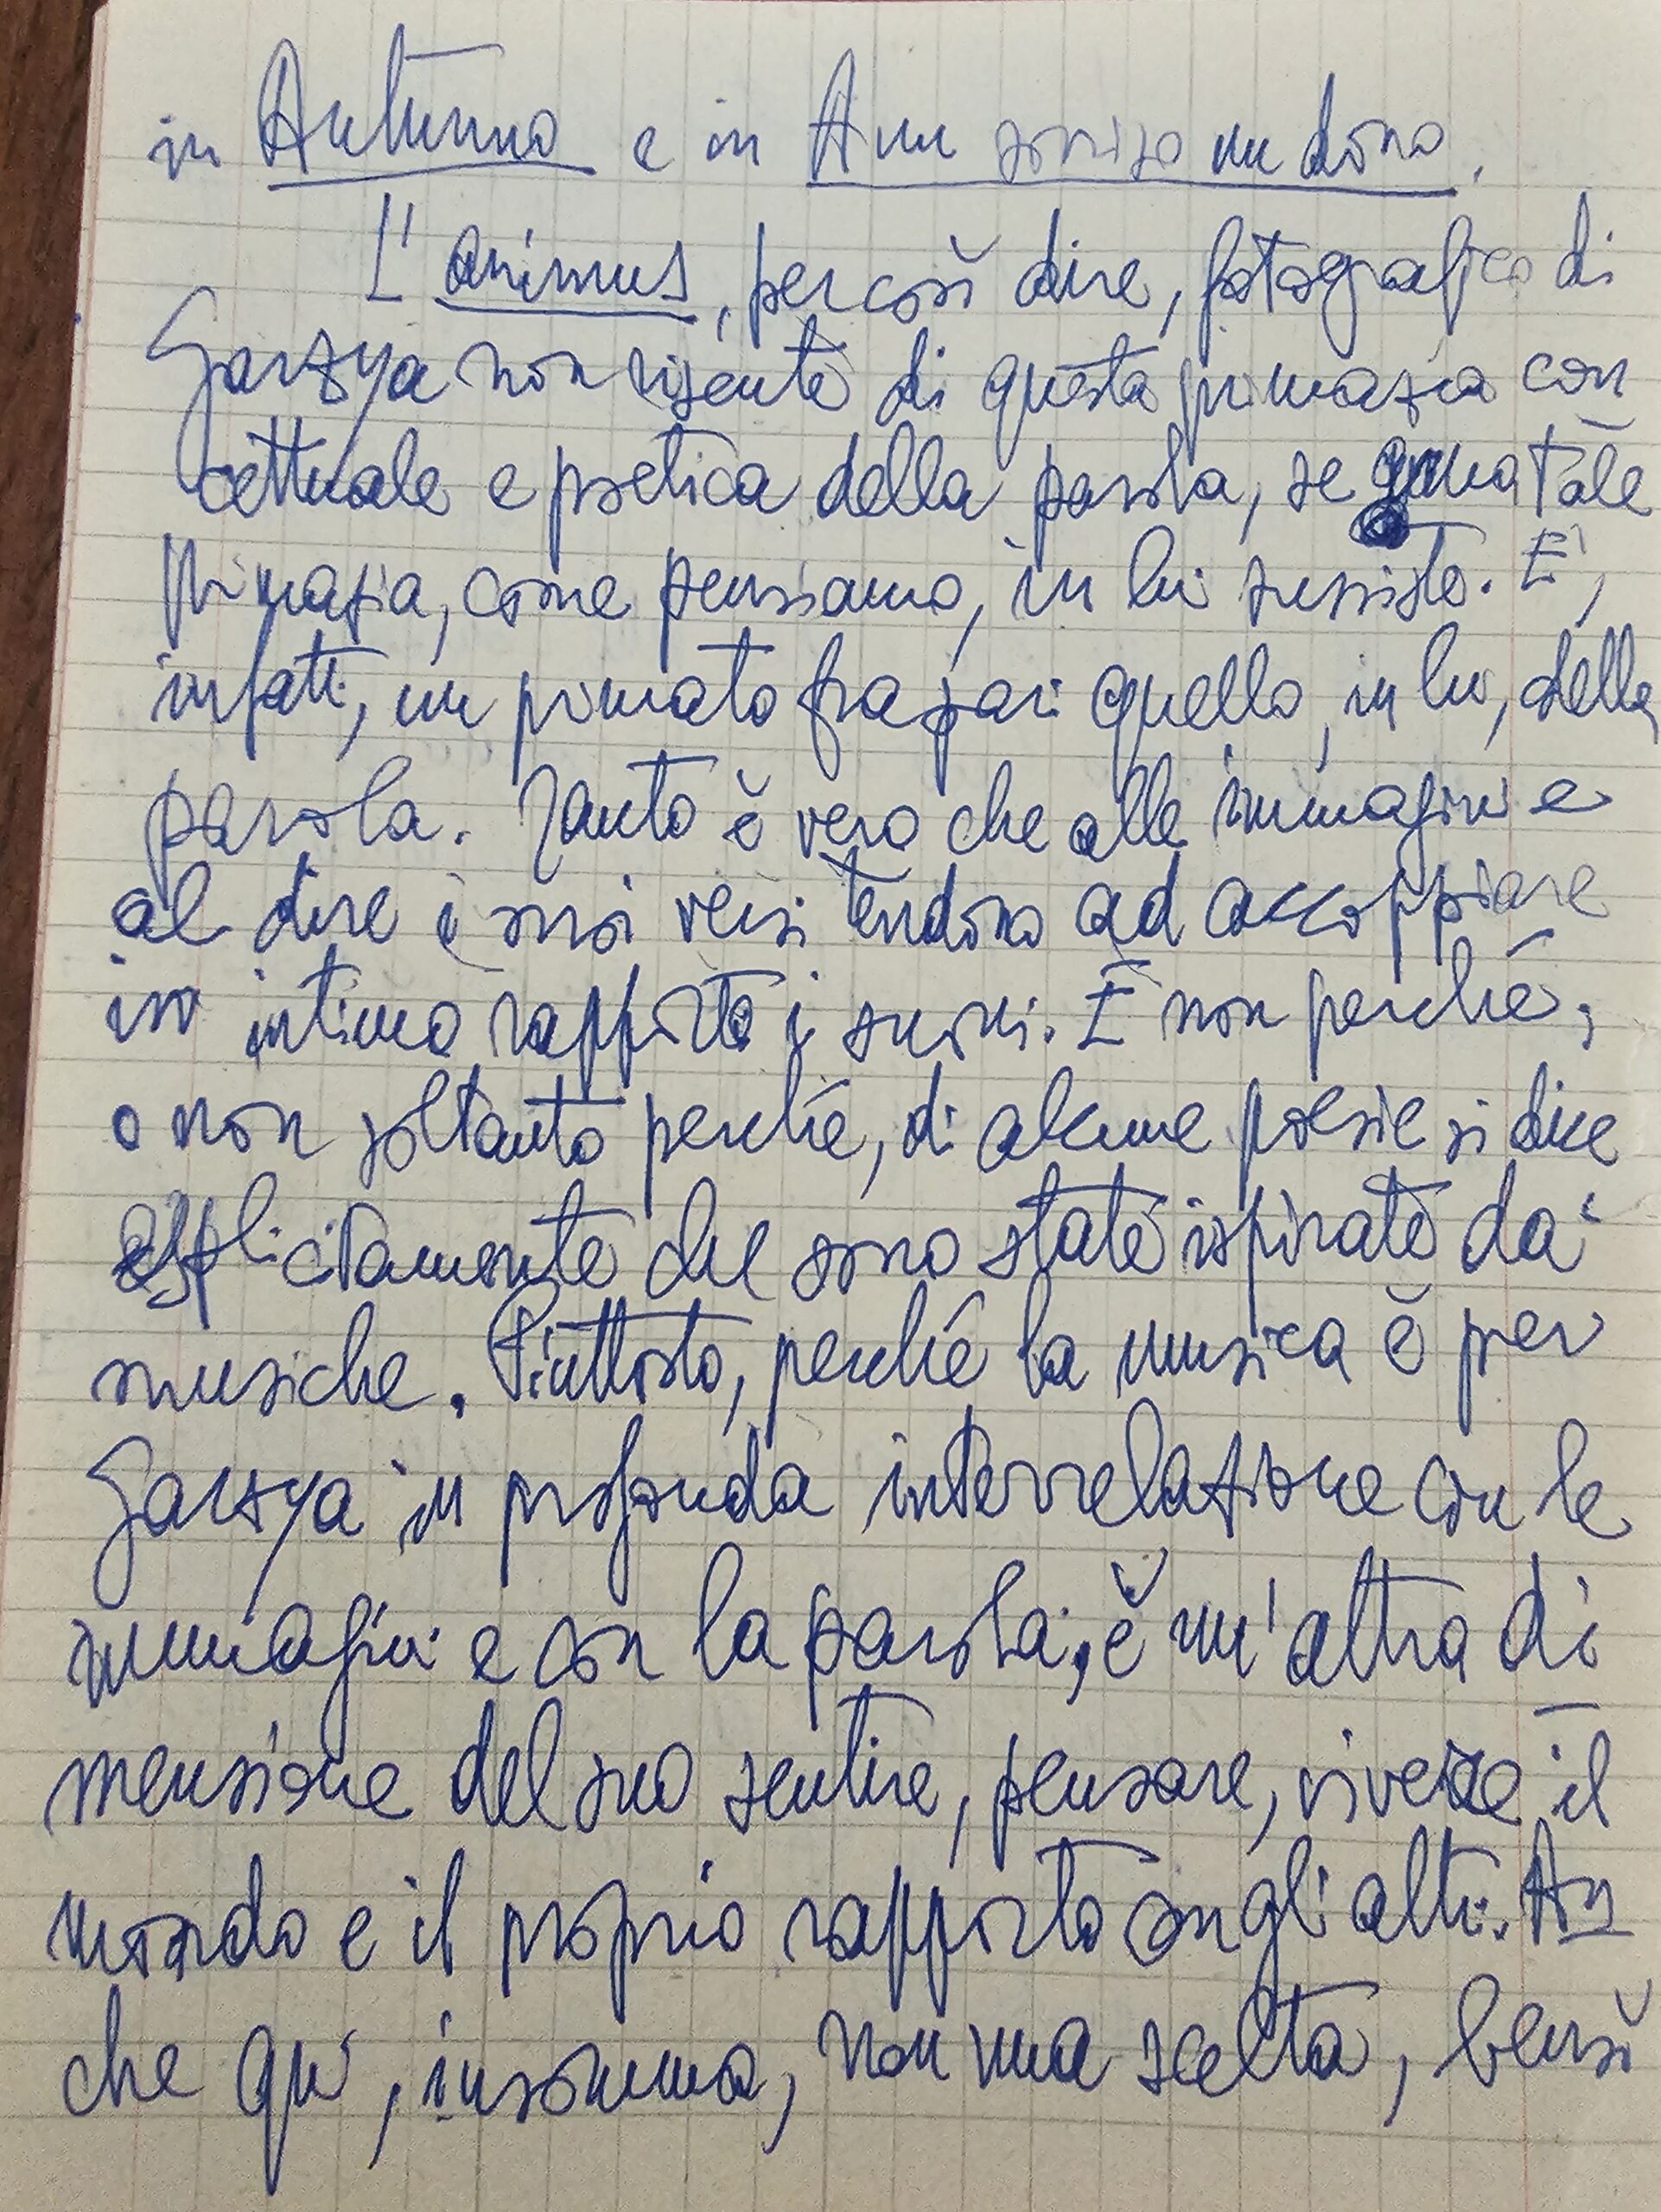 in Autunno e in A un sorriso un dono.
L'animus, per così dire, fotografico di
Garzya non risente di questa primazia con
cettuale e poetica della parola, se una tale
primazia, come pensiamo, in lui sussiste. E',
infatti, un primato fra pari quello, in lui, della
parola. Tanto è vero che alle immagini e
al dire i suoi versi tendono ad accoppiare
in intimo rapporto i suoni. E non perché,
o non soltanto perché, di alcune poesie si dice
esplicitamente che sono state ispirate da
musiche. Piuttosto, perché la musica è per
Garzya in profonda interrelazione con le
immagini e con la parola, è un'altra di
mensione del suo sentire, pensare, vivere il
mondo e il proprio rapporto con gli altri. An
che qui, insomma, non una scelta, bensì